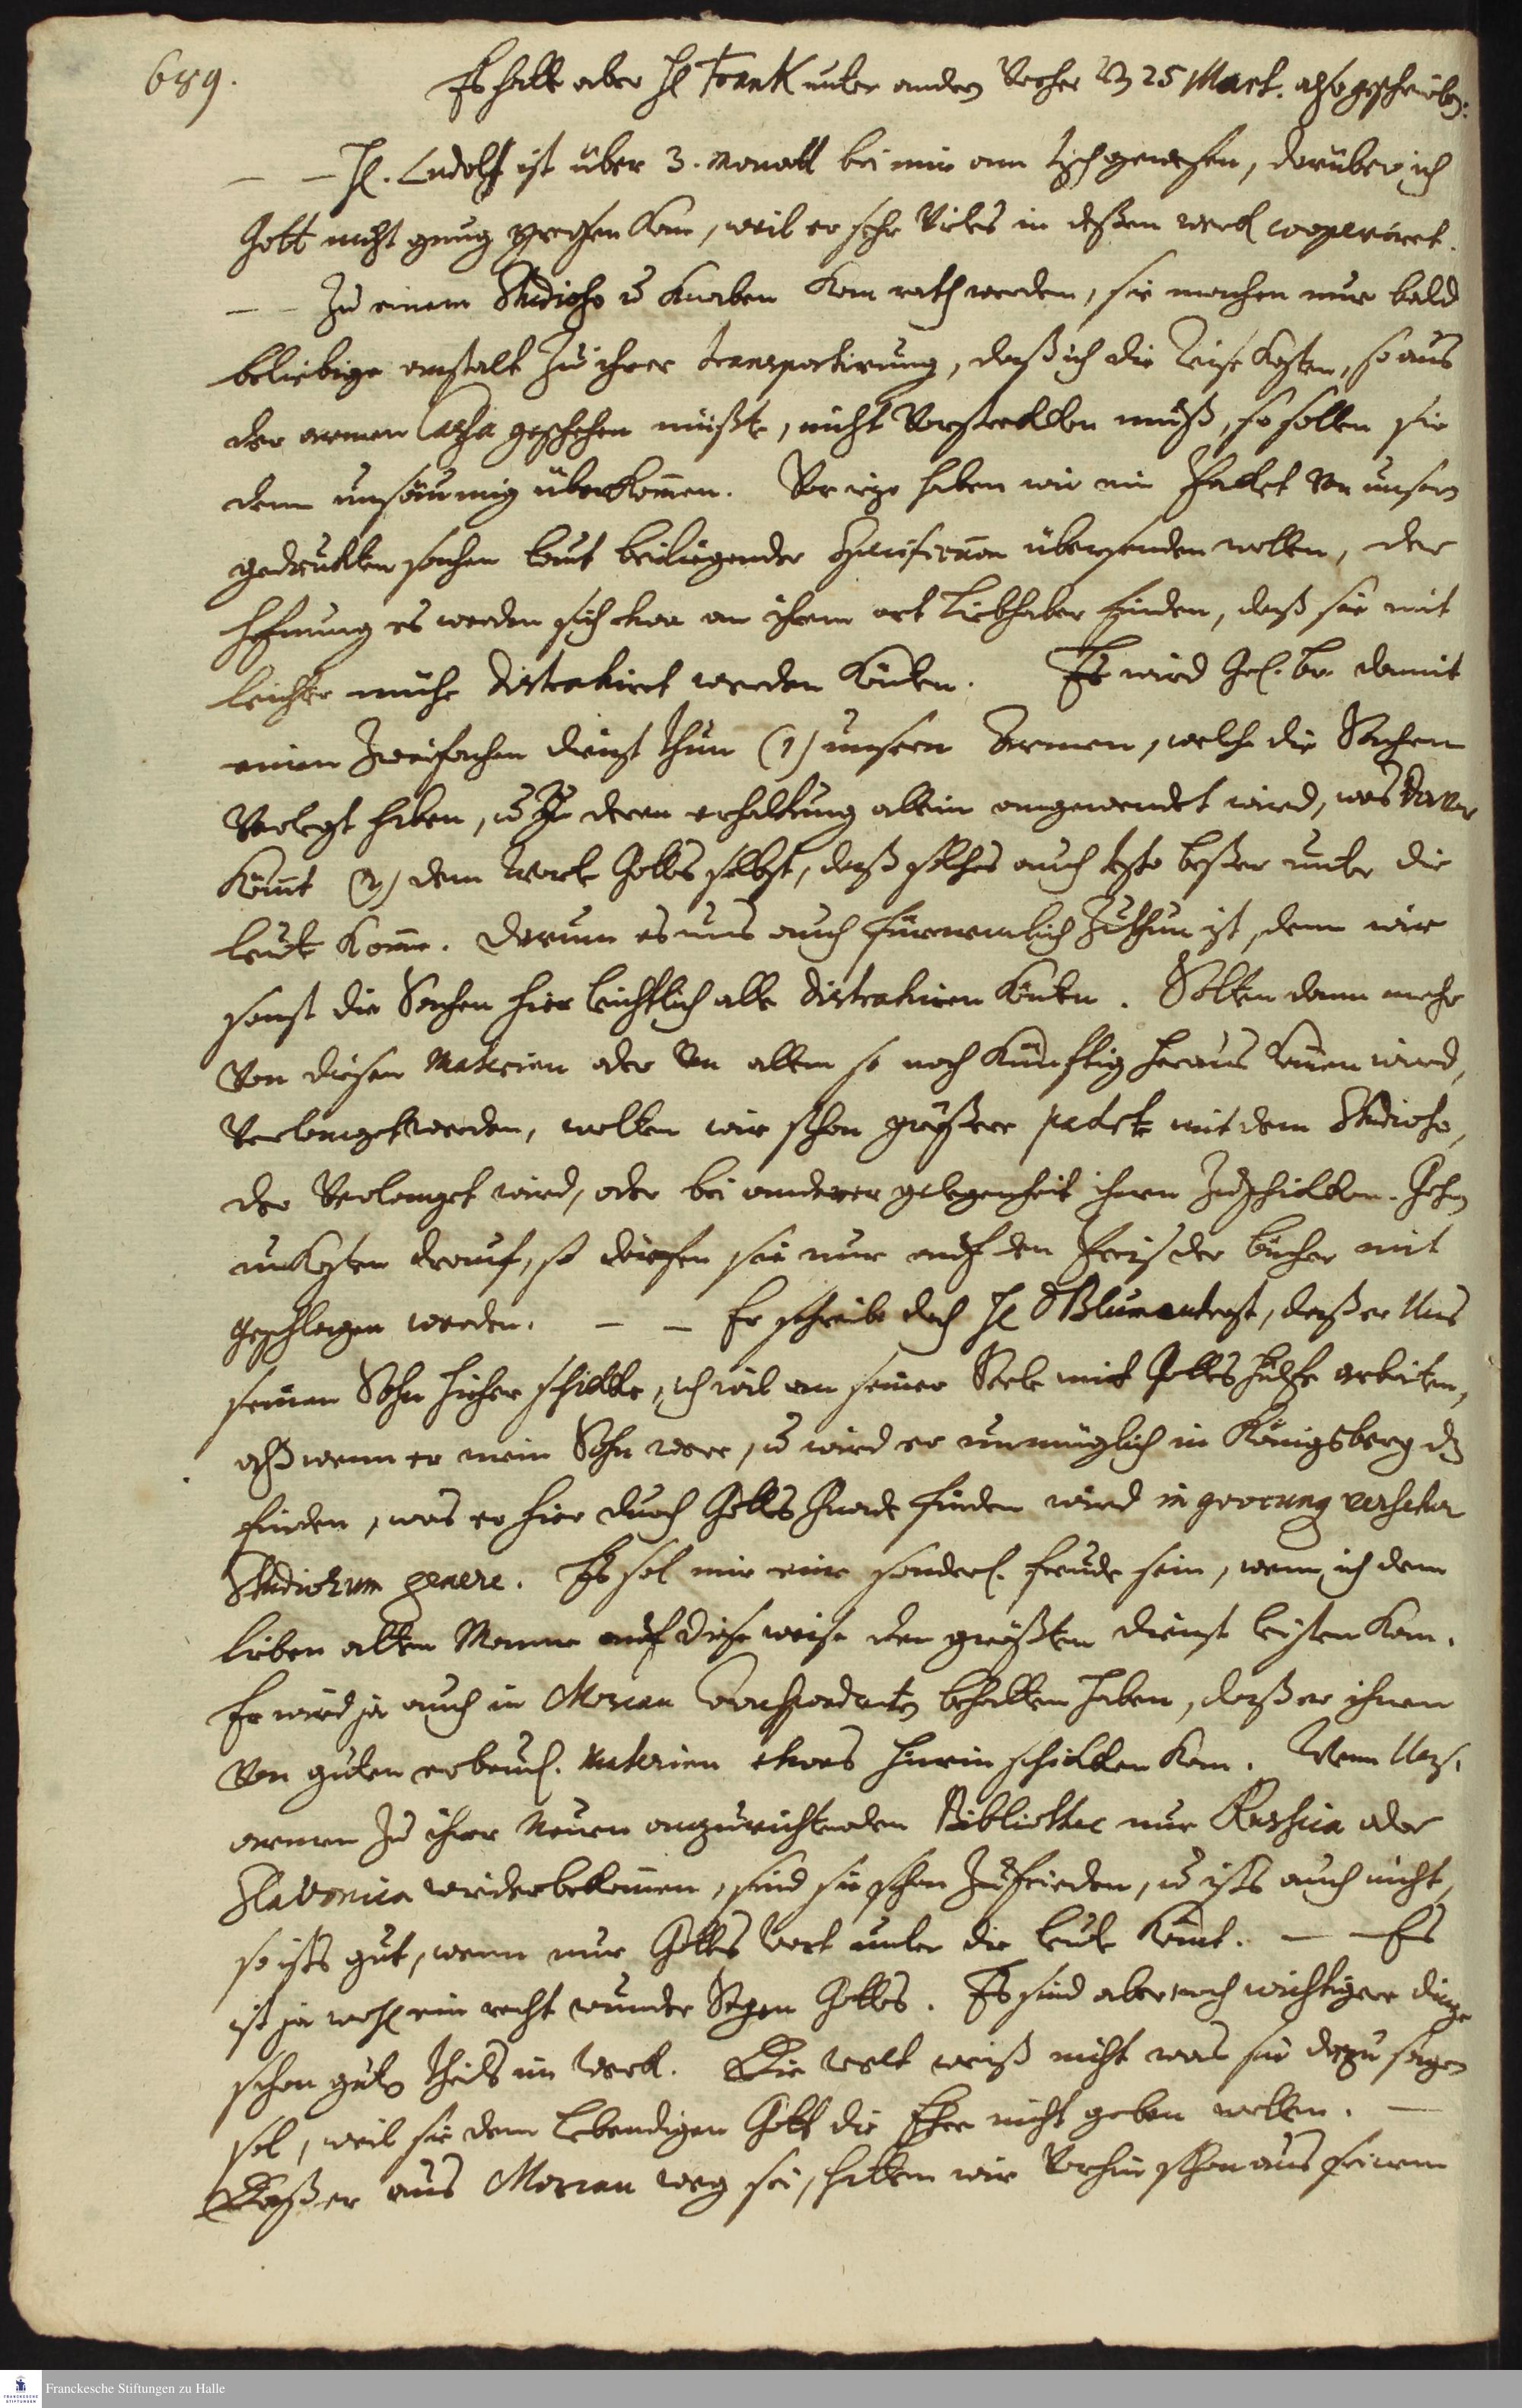 689.
Es hatte aber H. Frank unter andern Vorher d 25 Mart. also geschrieben:
— — H. Ludolf ist über 3. Monatt bei mir am tisch gewesen, darüber ich
Gott nicht gnug preisen kan, weil er sehr Vieles in deßen werk cooperiret.
— — Zu einem Studioso u Knaben kan rath werden, sie machen nur bald
beliebige anstalt zu ihrer transportirung, daß ich die Reise kosten, so aus
der armen Cassa geschehen müßte, nicht Vorstrekken muß, so sollen sie
dem unsäumig überkommen. Vor itzo haben wir ein Packet von unsern
gedrukten sachen laut beiliegender Specification übersenden wollen, der
hofnung es werden sich etwa an ihrem ort Liebhaber finden, daß sie mit
leichter mühe distrahiret werden könten. Es wird Gel. br. damit
einen zweifachen dienst thun (1) unsern Armen, welche die Sachen
Verlegt haben, u zu deren erhaltung allein angewendet wird, was davor
kömt (2) dem Worte Gottes selbst, daß solches auch desto beßer unter die
leute komme. darum es uns auch fürnemlich zuthun ist, denn wir
sonst die Sachen hier leichtlich alle distrahiren könten. Solten dann mehr
Von diesen Materien oder Von allem so noch künftig heraus kommen wird,
Verlanget werden, wollen wir schon größere packete mit dem Studioso,
der Verlanget wird, oder bei anderer gelegenheit ihnen zuschikken. Gehn
unkosten drauf, so dürfen sie nur auf den Preis der bücher mit
geschlagen werden. — — Er schreibe doch H D Blumentrost, daß er Uns
seinen Sohn hieher schikke, ich wil an seiner Seele mit Gottes hülfe arbeiten,
alß wenn er mein Sohn were, u wird er unmüglich in Königsberg dz
finden, was er hier durch Gottes Gnade finden wird in
Studiorum genere. Es sol mir eine sonderl. freude sein, wenn ich dem
lieben alten Manne auf diese weise den größten dienst leisten kan.
Er wird ja auch in Moscau Correspondenten behalten haben, daß er ihnen
Von guten erbaul. Materien etwas hinein schikken kan. Wenn Uns.
armen zu ihrer Neuen anzurichtenden Bibliothec nur Russica oder
Slavonica wiederbekommen, sind sie schon zufrieden, u ists auch nicht,
so ists gut, wenn nur Gottes Wort unter die leute kömt. — — Es
ist ja wohl ein recht wunder Segen Gottes. Es sind aber noch wichtigere dinge
schon guten theils im Werk. Die welt weiß nicht was sie dazu sagen
sol, weil sie dem Lebendigen Gott die Ehre nicht geben wollen. —
Daß er aus Moscau weg sei, hatten wir Vorhin schon aus seinem
Franckesche Stiftungen zu Halle